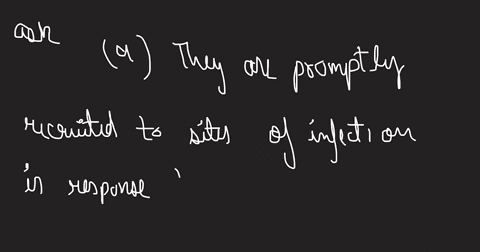 ask (a) They are promptly
recruited to sites of infection
in response '